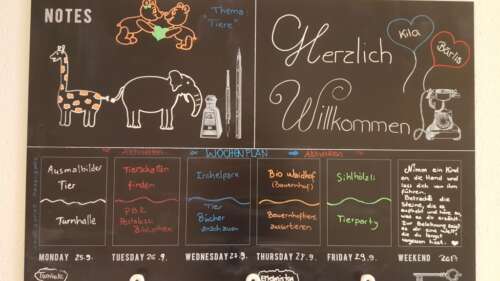 NOTES
Thema
"Tiere"
Herzlich
Willkommen
Kila
Bärlis
Aktivitäten WOCHENPLAN Aktivitäten
Ausmalbilder
Tier
Turnhalle
Tierschatten
finden
PBZ
Pestalozzi
Bibliothek
Tier
Bücher
anschauen
Bio Waldhof
(Bauernhof)
Bauernhoftiere
aussortieren
Sihlhölzli
Tierparty
Nimm ein Kind
an die Hand und
lass dich von ihm
führen.
Betrachte die
Steine, die es
aufhebt und höre zu,
was es dir erzählt.
Zur Belohnung zeigt
es dir eine Welt,
die du längst
vergessen hast.
MONDAY 25.9. TUESDAY 26.9. WEDNESDAY 27.9. THURSDAY 27.9. FRIDAY 29.9. WEEKEND 2017